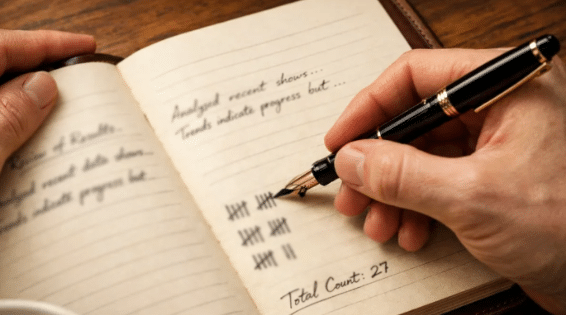 Review of Results
recent data shows...
indicate progress but...
Analyzed recent shows...
Trends indicate progress but ...
Total Count: 27